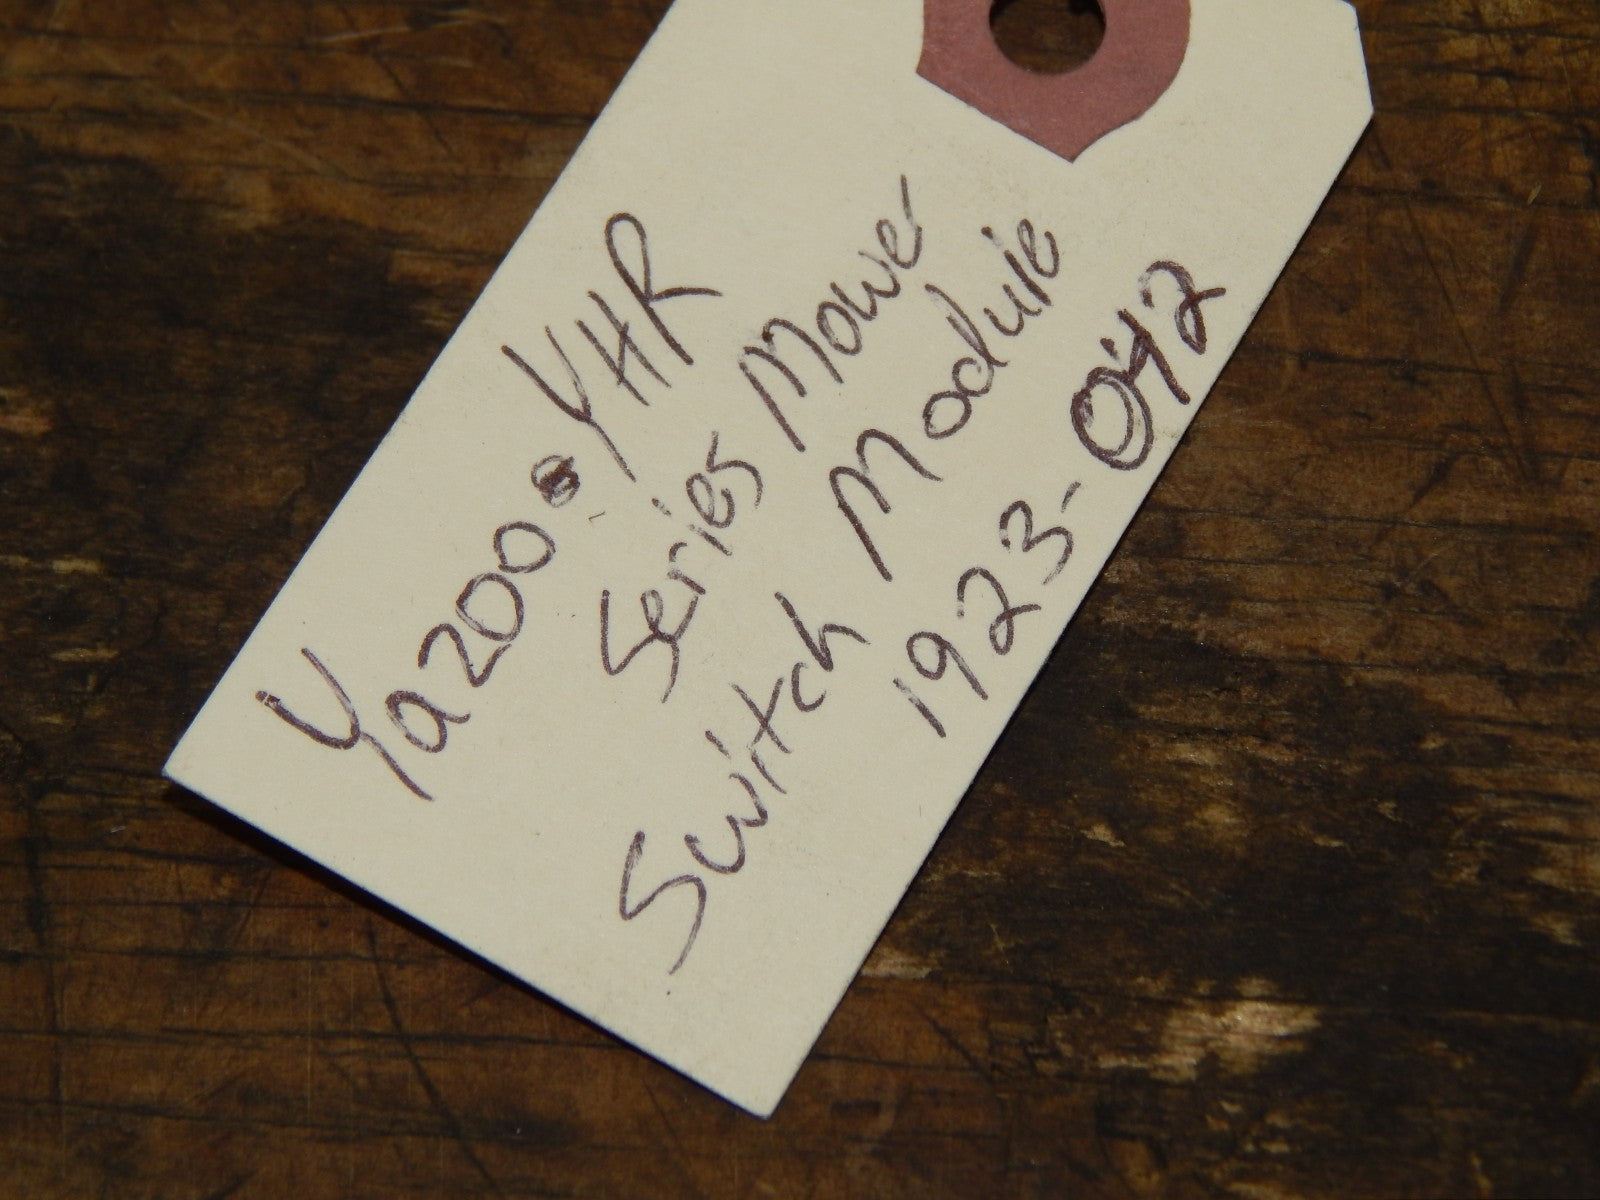 Yazoo YHR
Series Mower
Switch Module
1923-042